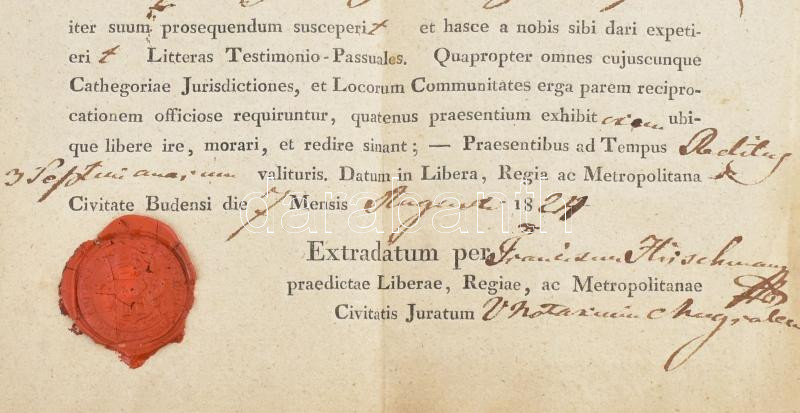 iter suum prosequendum susceperit et hasce a nobis sibi dari expeti-
erit Litteras Testimonio-Passuales. Quapropter omnes cujuscunque
Cathegoriae Jurisdictiones, et Locorum Communitates erga parem recipro-
cationem officiose requiruntur, quatenus praesentium exhibitorem ubi-
que libere ire, morari, et redire sinant; — Praesentibus ad Tempus Reditus
3 Septimanarum valituris. Datum in Libera, Regia ac Metropolitana
Civitate Budensi die 7 Mensis Augusti 1824
Extradatum per Franciscum Hirschmann
praedictae Liberae, Regiae, ac Metropolitanae
Civitatis Juratum V Notarium
darabanth